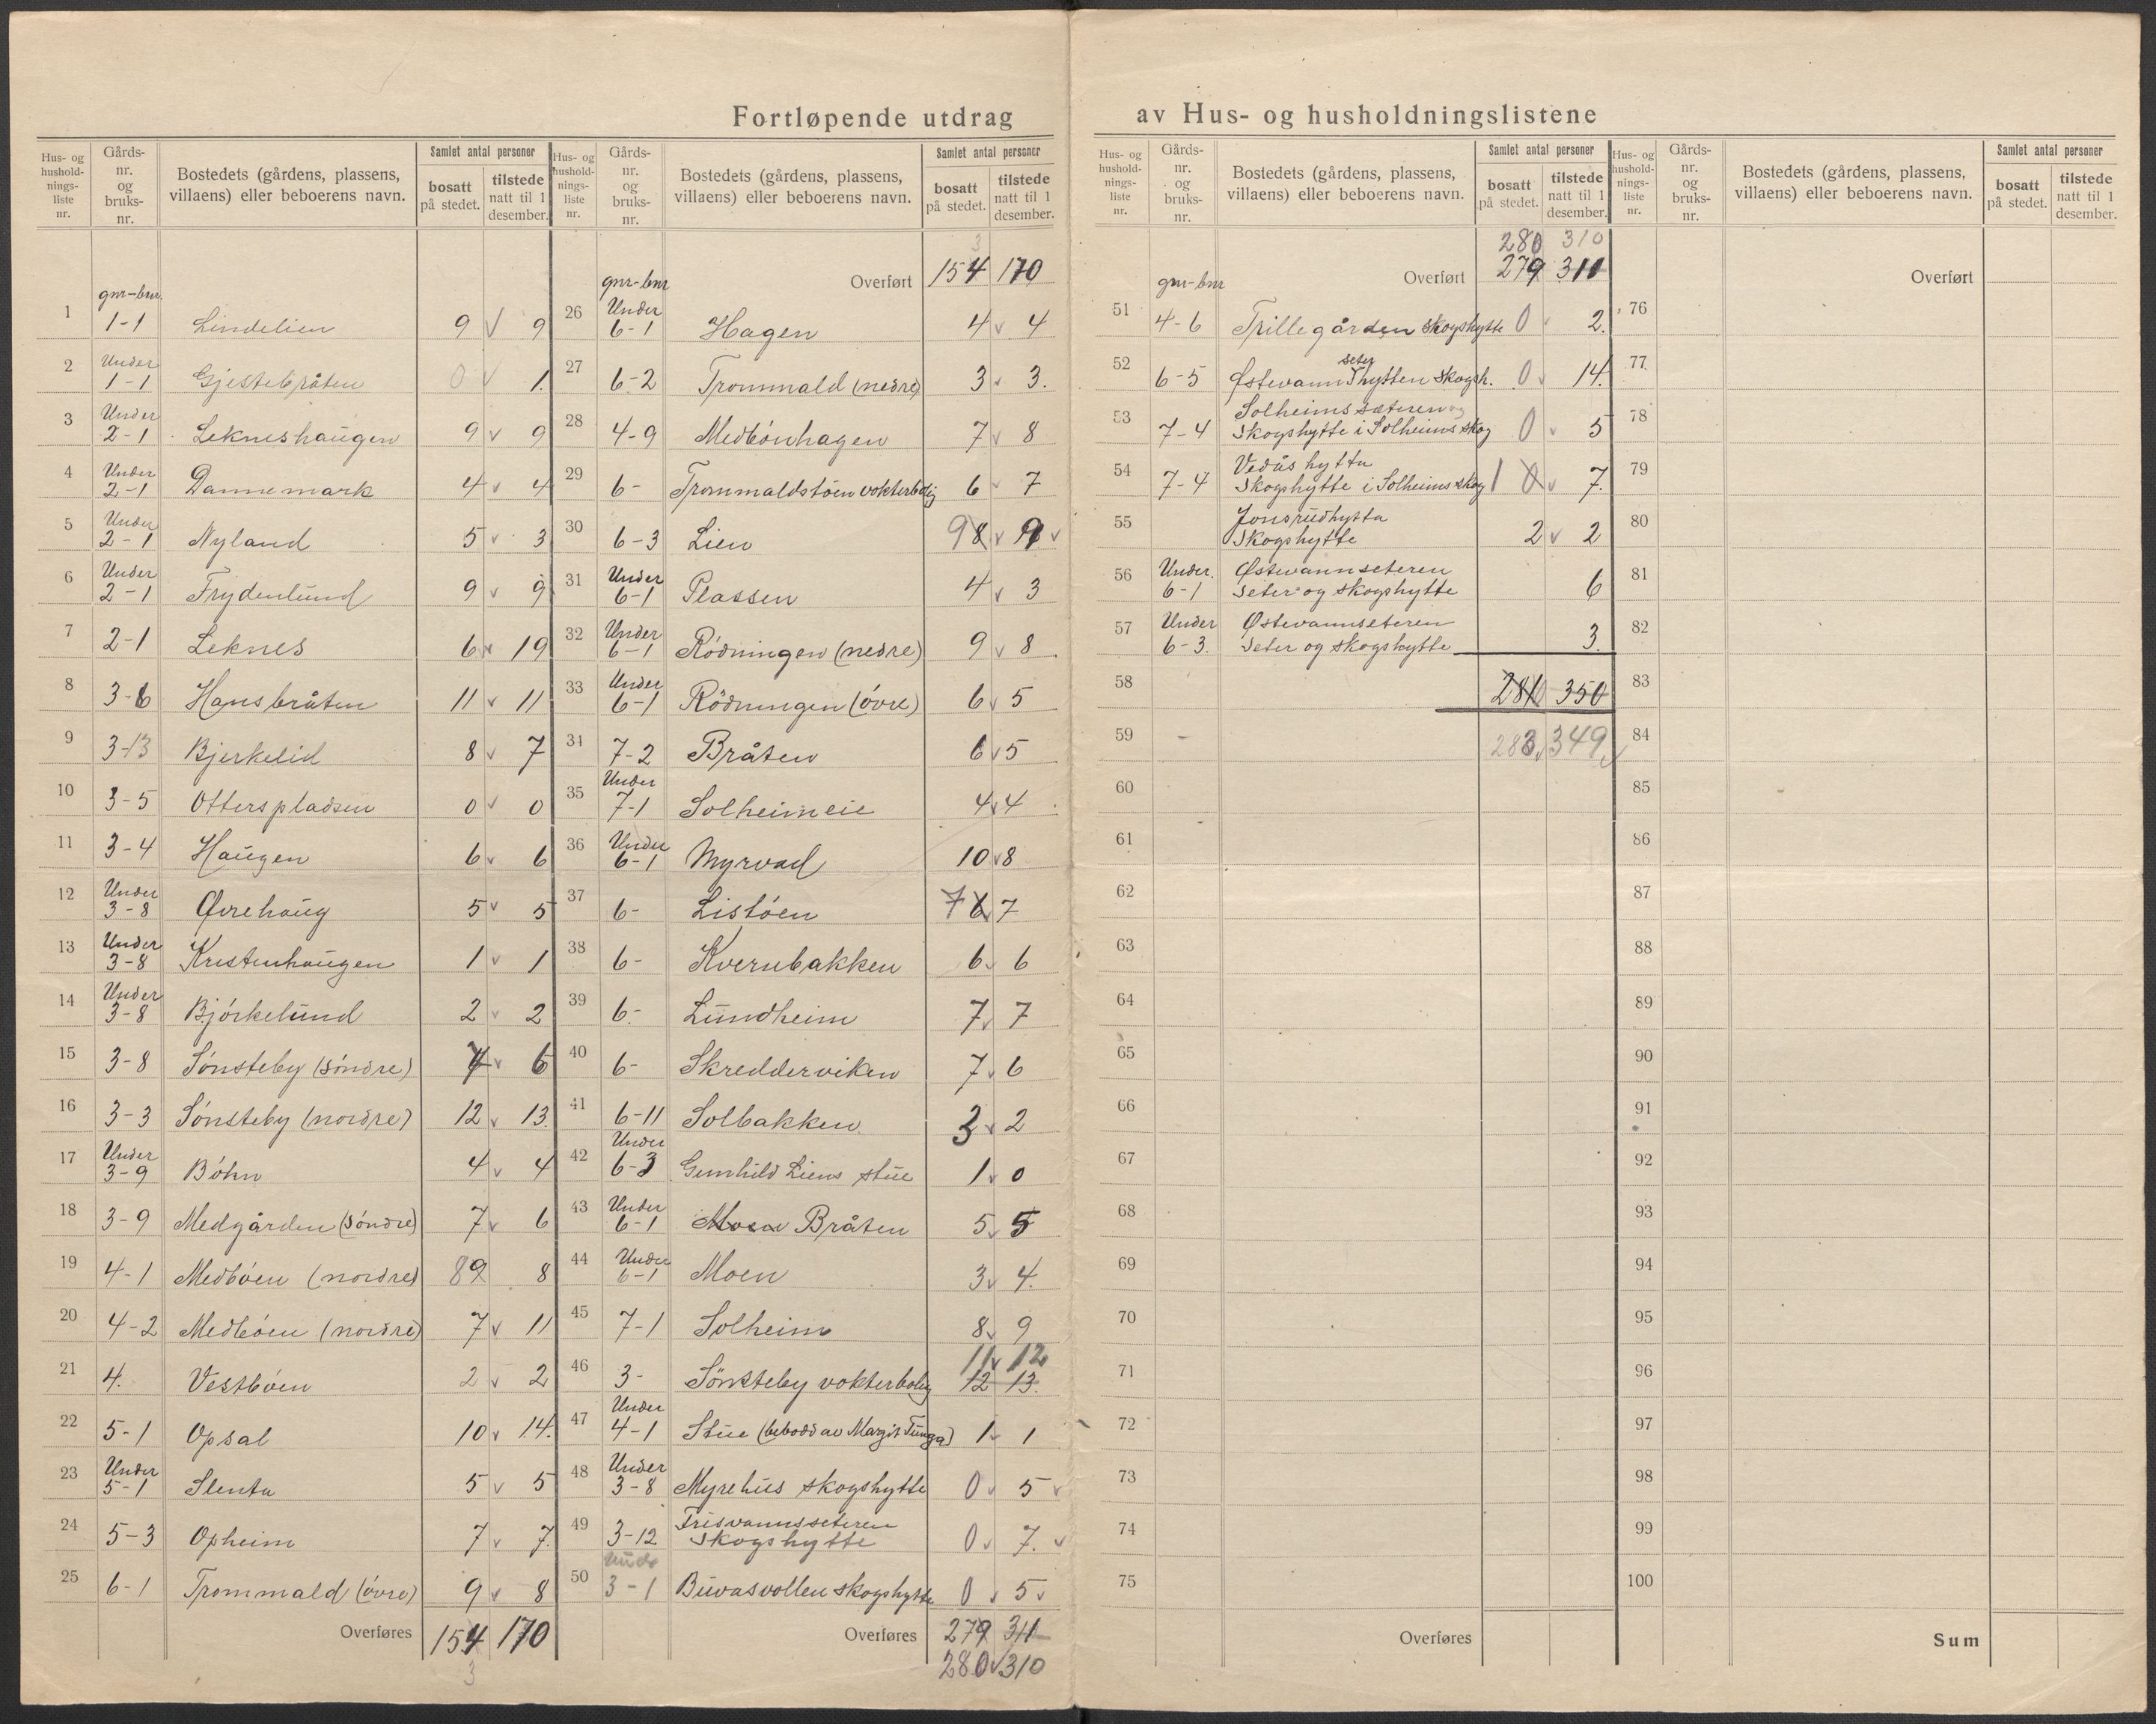 Fortløpende utdrag av Hus- og husholdningslistene
Hus- og hushold-nings-liste nr. Gårds-nr. og bruks-nr. Bostedets (gårdens, plassens, villaens) eller beboerens navn. Samlet antal personer bosatt på stedet. tilstede natt til 1 desember.
gnr-bnr.
1 1-1 Lindelien 9 v 9
2 Under 1-1 Gjestebråten 0 v 1.
3 Under 2-1 Lekneshaugen 9 v 9
4 Under 2-1 Dannemark 4 v 4
5 Under 2-1 Nyland 5 v 3
6 Under 2-1 Frydenlund 9 v 9
7 2-1 Leknes 6 v 19
8 3-6 Hansbråten 11 v 11
9 3-13 Bjerkelid 8 v 7
10 3-5 Otterspladsen 0 v 0
11 3-4 Haugen 6 v 6
12 Under 3-8 Øvrehaug 5 v 5
13 Under 3-8 Kristenhaugen 1 v 1
14 Under 3-8 Bjórkelund 2 v 2
15 3-8 Sónsteby (sóndre) v 6
16 3-3 Sónsteby (nordre) 12 v 13.
17 Under 3-9 Bóhn 4 v 4
18 3-9 Medgården (sóndre) 7 v 6
19 4-1 Medbóen (nordre) 8 9 8
20 4-2 Medbóen (nordre) 7 v 11
21 4. Vestbóen 2 v 2
22 5-1 Opsal 10 v 14.
23 Under 5-1 Slenta 5 v 5
24 5-3 Opheim 7 v 7.
25 6-1 Trommald (óvre) 9 v 8
Overføres 154 170
3
Hus- og hushold-nings-liste nr. Gårds-nr. og bruks-nr. Bostedets (gårdens, plassens, villaens) eller beboerens navn. Samlet antal personer bosatt på stedet. tilstede natt til 1 desember.
3
gnr-bnr Overført 154 170
26 Under 6-1 Hagen 4 v 4
27 6-2 Trommald (nedre) 3 v 3.
28 4-9 Medbónhagen 7 v 8
29 6- Trommaldstóen vokterbolig 6 v 7
30 6-3 Lien 9 8 v 9 v
31 Under 6-1 Plassen 4 v 3
32 Under 6-1 Ródningen (nedre) 9 v 8
33 Under 6-1 Rödningen (óvre) 6 v 5
34 7-2 Bråten 6 v 5
35 Under 7-1 Solheimeie 4 v 4
36 Under 6-1 Myrvad 10 v 8
37 6- Listóen 7 6 7
38 6- Kvernbakken 6 v 6
39 6- Lundheim 7 v 7
40 6- Skredderviken 7 v 6
41 6-11 Solbakken 3 v 2
42 Under 6-3 Gunhild Liens stue 1 v 0
43 Under 6-1 Moen Bråten 5 v 5
44 Under 6-1 Moen 3 v 4.
45 7-1 Solheim 8 v 9
11 v 12
46 3- Sönsteby vokterbolig 12 13.
47 Under 4-1 Stue (bebodd av Margit Tunga) 1 v 1
48 Under 3-8 Myrehus skogshytte 0 v 5 v
49 3-12 Trisvannsseteren skogshytte 0 v 7. v
50 Under 3-1 Buvasvollen skogshytte 0 v 5 v
Overføres 279 311
280 v 310
Hus- og hushold-nings-liste nr. Gårds-nr. og bruks-nr. Bostedets (gårdens, plassens, villaens) eller beboerens navn. Samlet antal personer bosatt på stedet. tilstede natt til 1 desember.
280 310
gnr-bnr Overført 279 311
51 4-6 Trillegården skogshytte 0 v 2.
52 6-5 Østevannseterhytten skogsh. 0 v 14.
53 7-4 Solheimssæteren og skogshytte i Solheims skog 0 v 5
54 7-4 Vedåshytta skogshytte i Solheims skog 1 0 v 7.
55 Jonsrudhytta skogshytte 2 v 2
56 Under. 6-1 Østevannseteren seter og skogshytte 6
57 Under 6-3. Østevannseteren seter og skogshytte 3.
58 281 350
59 283 v 349 v
60
61
62
63
64
65
66
67
68
69
70
71
72
73
74
75
Overføres
Hus- og hushold-nings-liste nr. Gårds-nr. og bruks-nr. Bostedets (gårdens, plassens, villaens) eller beboerens navn. Samlet antal personer bosatt på stedet. tilstede natt til 1 desember.
Overført
76
77
78
79
80
81
82
83
84
85
86
87
88
89
90
91
92
93
94
95
96
97
98
99
100
Sum